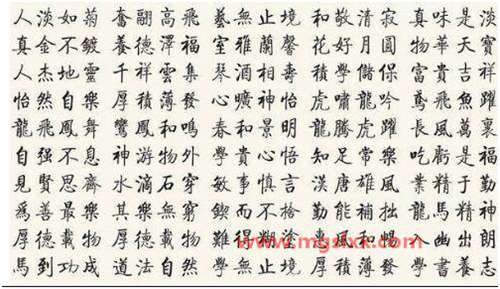 人淡如菊 奮翮高飛 藝無止境 和敬清寂 真味是淡
真金不鍍 養德澤福 室雅蘭馨 花好月圓 物華天寶
人杰地靈 千祥雲集 琴酒相壽 積學儲保 富貴吉祥
怡然自樂 厚積薄發 心曠神怡 虎嘯龍吟 鳶飛魚躍
龍飛鳳舞 鸞鳳和鳴 春和景明 龍騰虎躍 長風萬裏
自强不息 神游物外 學貴心悟 知足常樂 吃虧是福
見賢思齊 水滴石穿 敏事慎言 漢唐雄風 業精于勤
為善最樂 其樂無窮 鍥而不捨 勤能補拙 龍馬精神
厚德載物 厚德載物 難得糊塗 惠風和暢 入幽出朗
馬到功成 道法自然 學無止境 厚積薄發 學書養志